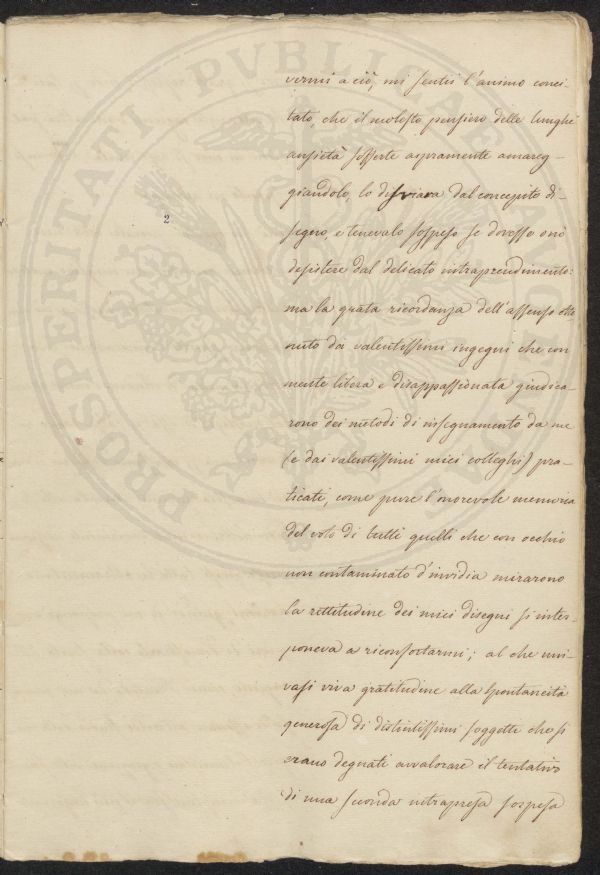 PROSPERITATI PVBLICAE
2
vermi a ciò, mi sentii l'animo conci-
tato, che il molesto pensiero delle lunghe
ansietà sofferte aspramente amareg-
giandolo, lo disviava dal concepito di-
segno, e tenevalo sospeso se dovesse o nò
desistere dal delicato intraprendimento:
ma la grata ricordanza dell'assenso otte-
nuto da valentissimi ingegni che con
mente libera e disappassionata giudica-
rono dei metodi di insegnamento da me
(e dai valentissimi miei colleghi) pra-
ticati, come pure l'onorevole memoria
del voto di tutti quelli che con occhio
non contaminato d'invidia mirarono
la rettitudine dei miei disegni si inter-
poneva a riconfortarmi; al che uni-
vasi viva gratitudine alla spontaneità
generosa di distintissimi soggetti che si
erano degnati avvalorare il tentativo
di una seconda intrapresa sospesa